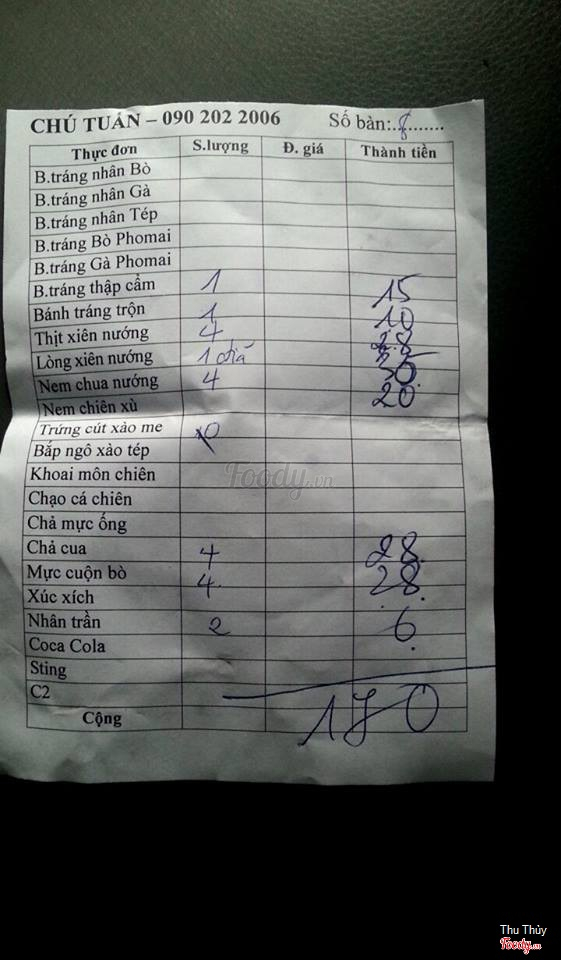 CHÚ TUẤN – 090 202 2006 Số bàn:..8.......
Thực đơn S.lượng Đ. giá Thành tiền
B.tráng nhân Bò
B.tráng nhân Gà
B.tráng nhân Tép
B.tráng Bò Phomai
B.tráng Gà Phomai
B.tráng thập cẩm 1 15
Bánh tráng trộn 1 10
Thịt xiên nướng 4 28
Lòng xiên nướng 1 đĩa
Nem chua nướng 4 20
Nem chiên xù
Trứng cút xào me
Bắp ngô xào tép
Khoai môn chiên
Chạo cá chiên
Chả mực ống
Chả cua 4 28
Mực cuộn bò 4 28
Xúc xích
Nhân trần 2 6
Coca Cola
Sting
C2
Cộng 170
Foody.vn
Thu Thủy
Foody.vn